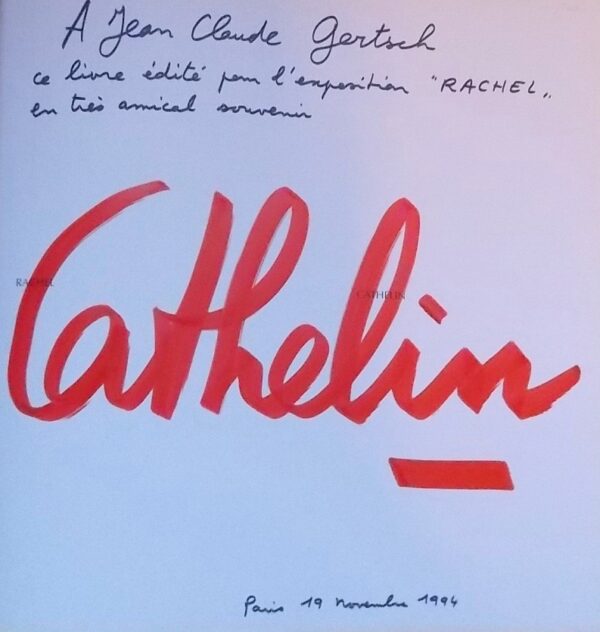 A Jean Claude Gertsch
ce livre édité pour l'exposition "RACHEL"
en très amical souvenir
RACHEL
CATHELIN
Cathelin
Paris 19 novembre 1994